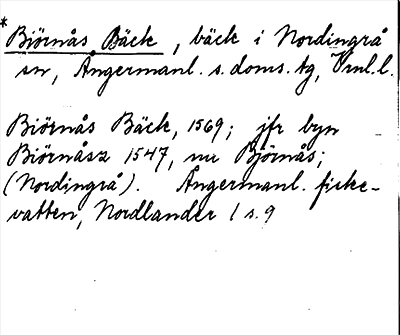 * Biörnås Bäck, bäck i Nordingrå
sn, Ångermanl. s. doms. tg, Vnl. l.
Biörnås Bäck, 1569; jfr byn
Biörnåsz 1547, nu Björnås;
(Nordingrå). Ångermanl. fiske-
vatten, Nordlander 1 s. 9